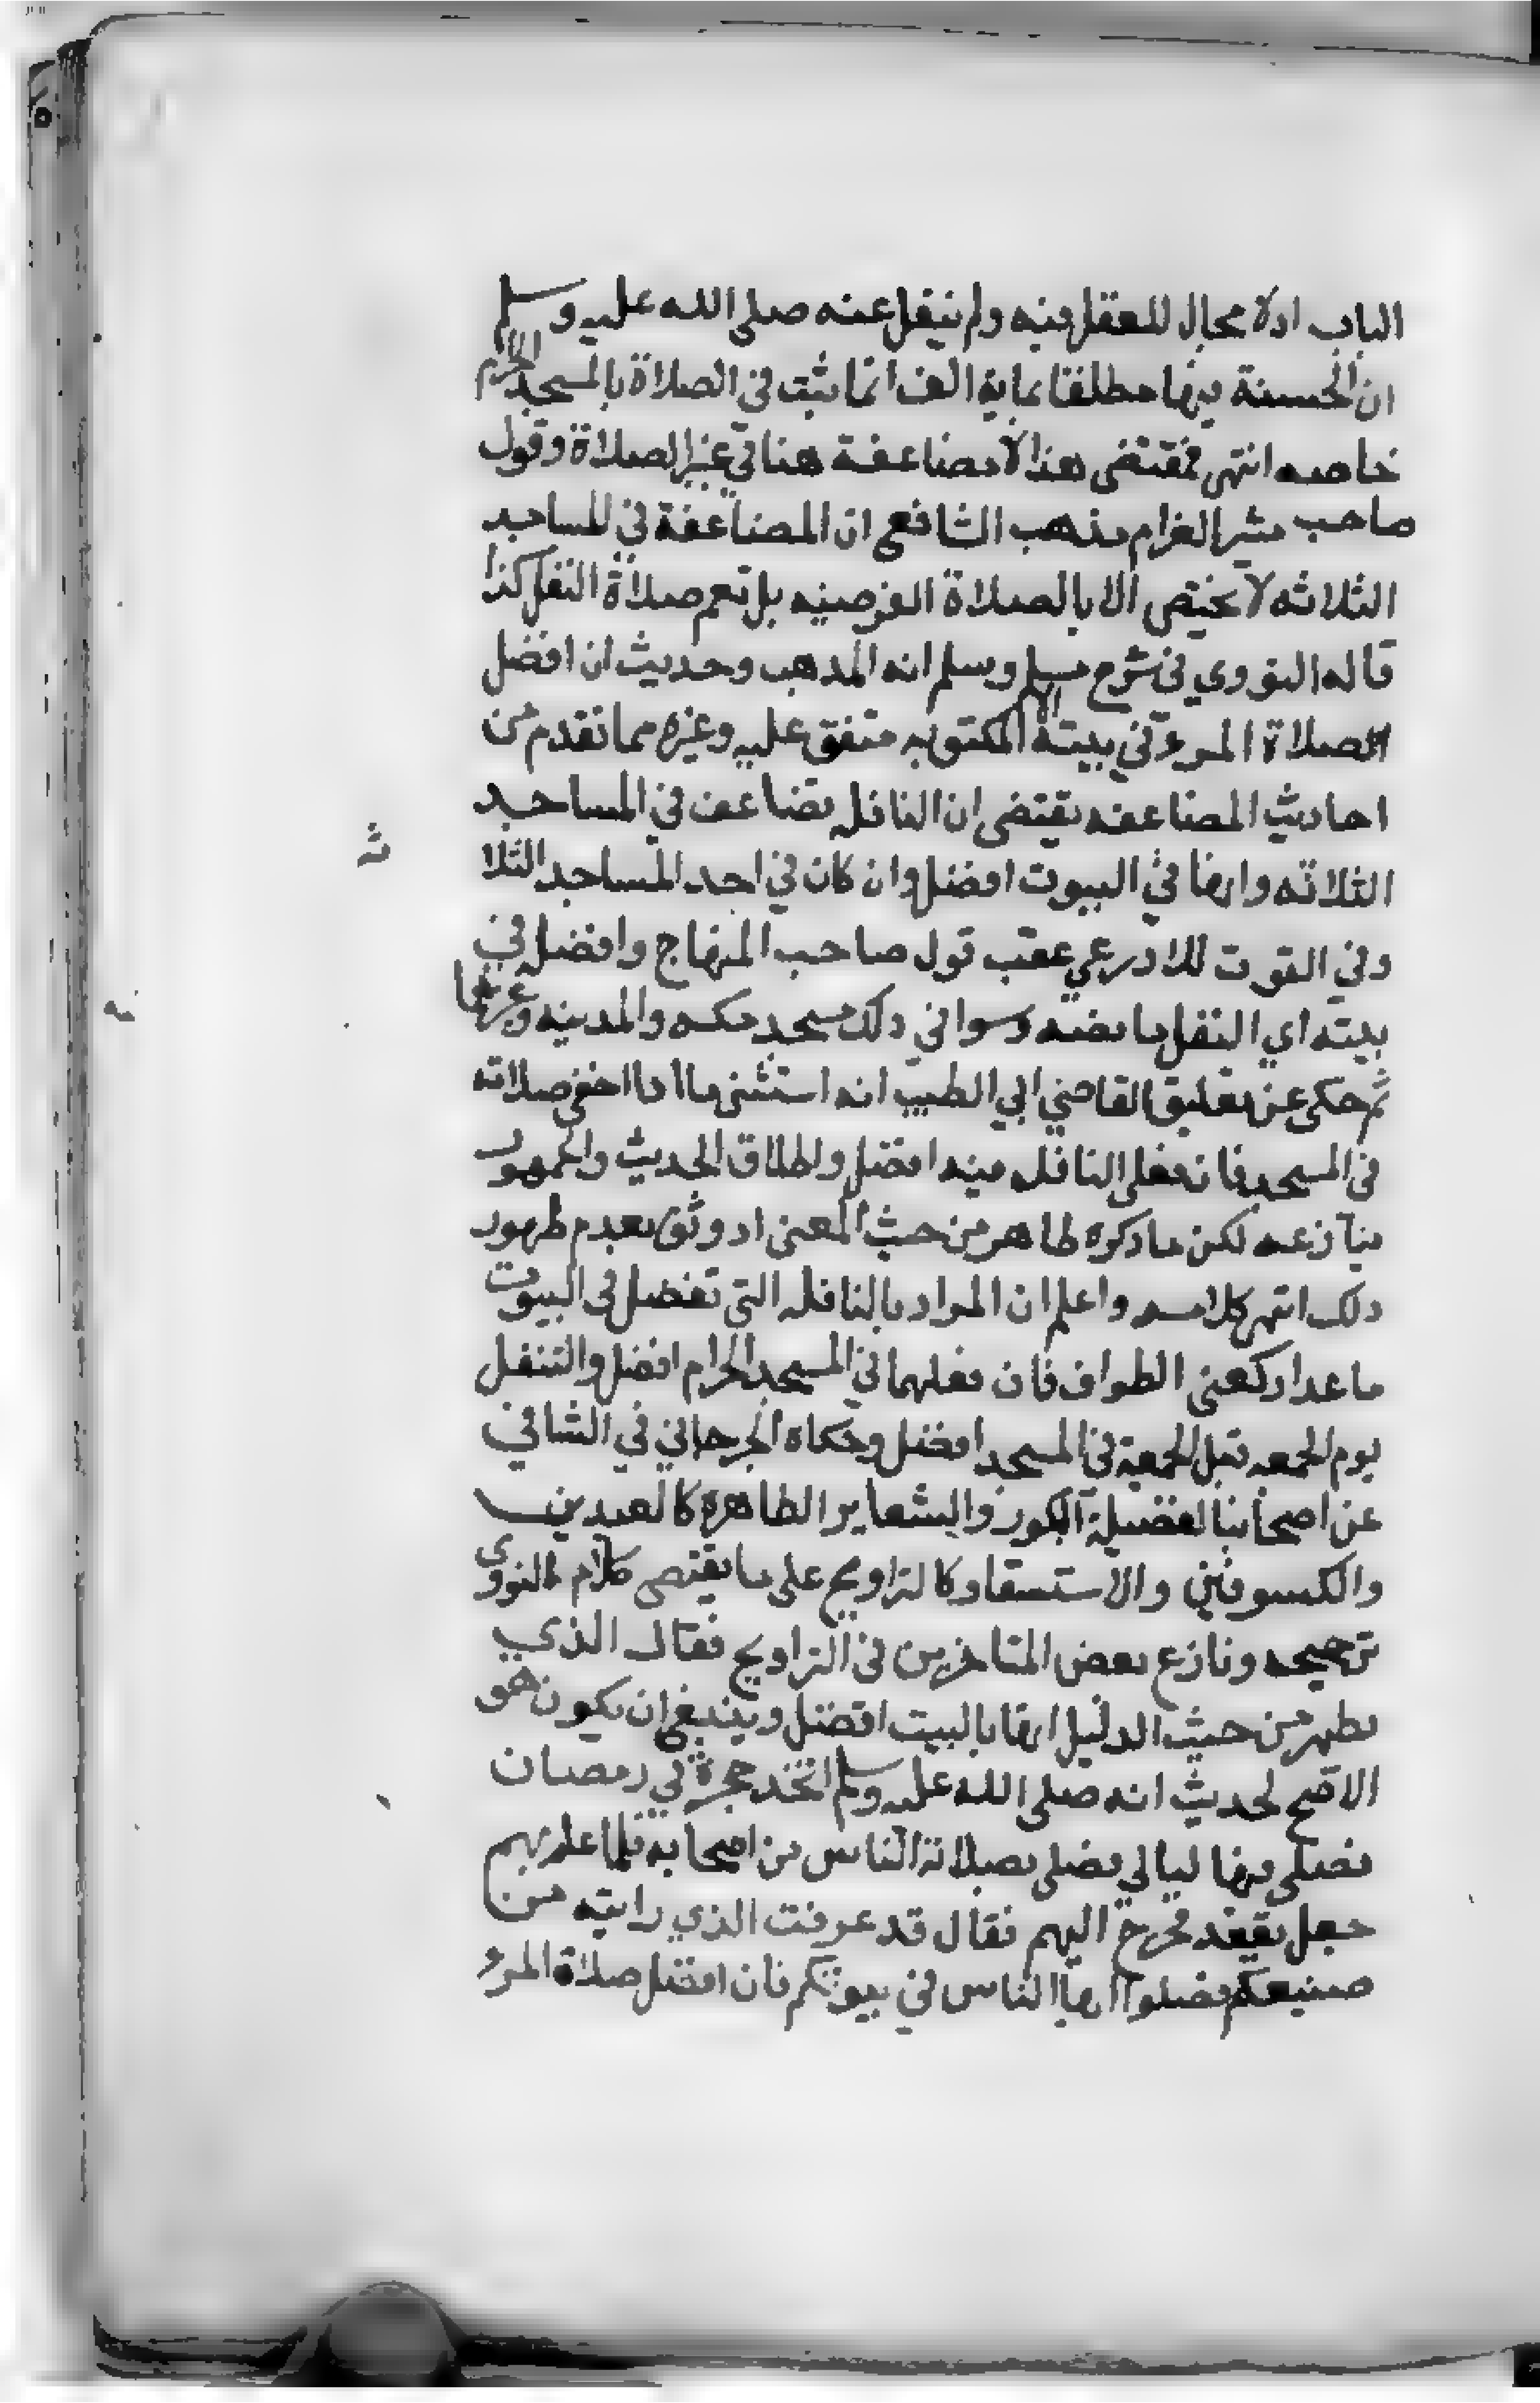 الباب اد لا مجال للعقل فيه ولم ينقل عنه صلى الله عليه وسلم
ان الحسنة فيها مطلقا بماية الف انما ثبت في الصلاة بالمسجد الحرام
خاصه انتهى فمقتضى هذا لا مضاعفة هنا في غير الصلاة وقول
صاحب مثير الغرام مذهب الشافعي ان المضاعفة في المساجد
الثلاثه لا يختص الا بالصلاة الفرضيه بل تعم صلاة النفل كذا
قاله النووي في شرح مسلم وسلم انه المدهب وحديث ان افضل
الصلاة المرء في بيته الا المكتوبه متفق عليه وغيره مما تقدم من
احاديث المضاعفه يقتضى ان النافله تضاعف في المساجد
الثلاثه وانها في البيوت افضل وان كان في احد المساجد الثلا
ثه
وفي القوت للادرعي عقب قول صاحب المنهاج وافضل في
بيته اي النفل ما نصه وسوا في دلك مسجد مكه والمدينه وغيرهما
ثم حكى عن تعليق القاضي ابي الطيب انه استثنى ما ادا اخفى صلاته
في المسجد فان فعل النافله فيه افضل واطلاق الحديث والجمهور
ينازعه لكن ما دكره طاهر من حيث المعنى اد وثق بعدم طهور
دلك انتهى كلامه واعلم ان المراد بالنافله التي تفضل في البيوت
ما عدا ركعتي الطواف فان فعلهما في المسجد الحرام افضل والتنفل
يوم الجمعه قبل الجمعة في المسجد افضل وحكاه الجرجاني في الشافي
عن اصحابنا لفضيلة البكور والشعاير الطاهره كالعيدين
والكسوفين والاستسقا وكالتراويح على ما يقتضى كلام النووي
ترجيحه ونازع بعض المتاخرين في التراويح فقال الذي
يطهر من حيث الدليل انها بالبيت افضل وينبغي ان يكون هو
الاصح لحديث انه صلى الله عليه وسلم اتخد حجرة في رمضان
فصلى فيها ليالي فصلى بصلاته الناس من اصحابه فلما علم بهم
جعل يقعد فخرج اليهم فقال قد عرفت الذي رايته من
صنيعكم فصلوا ايها الناس في بيوتكم فان افضل صلاة المرء